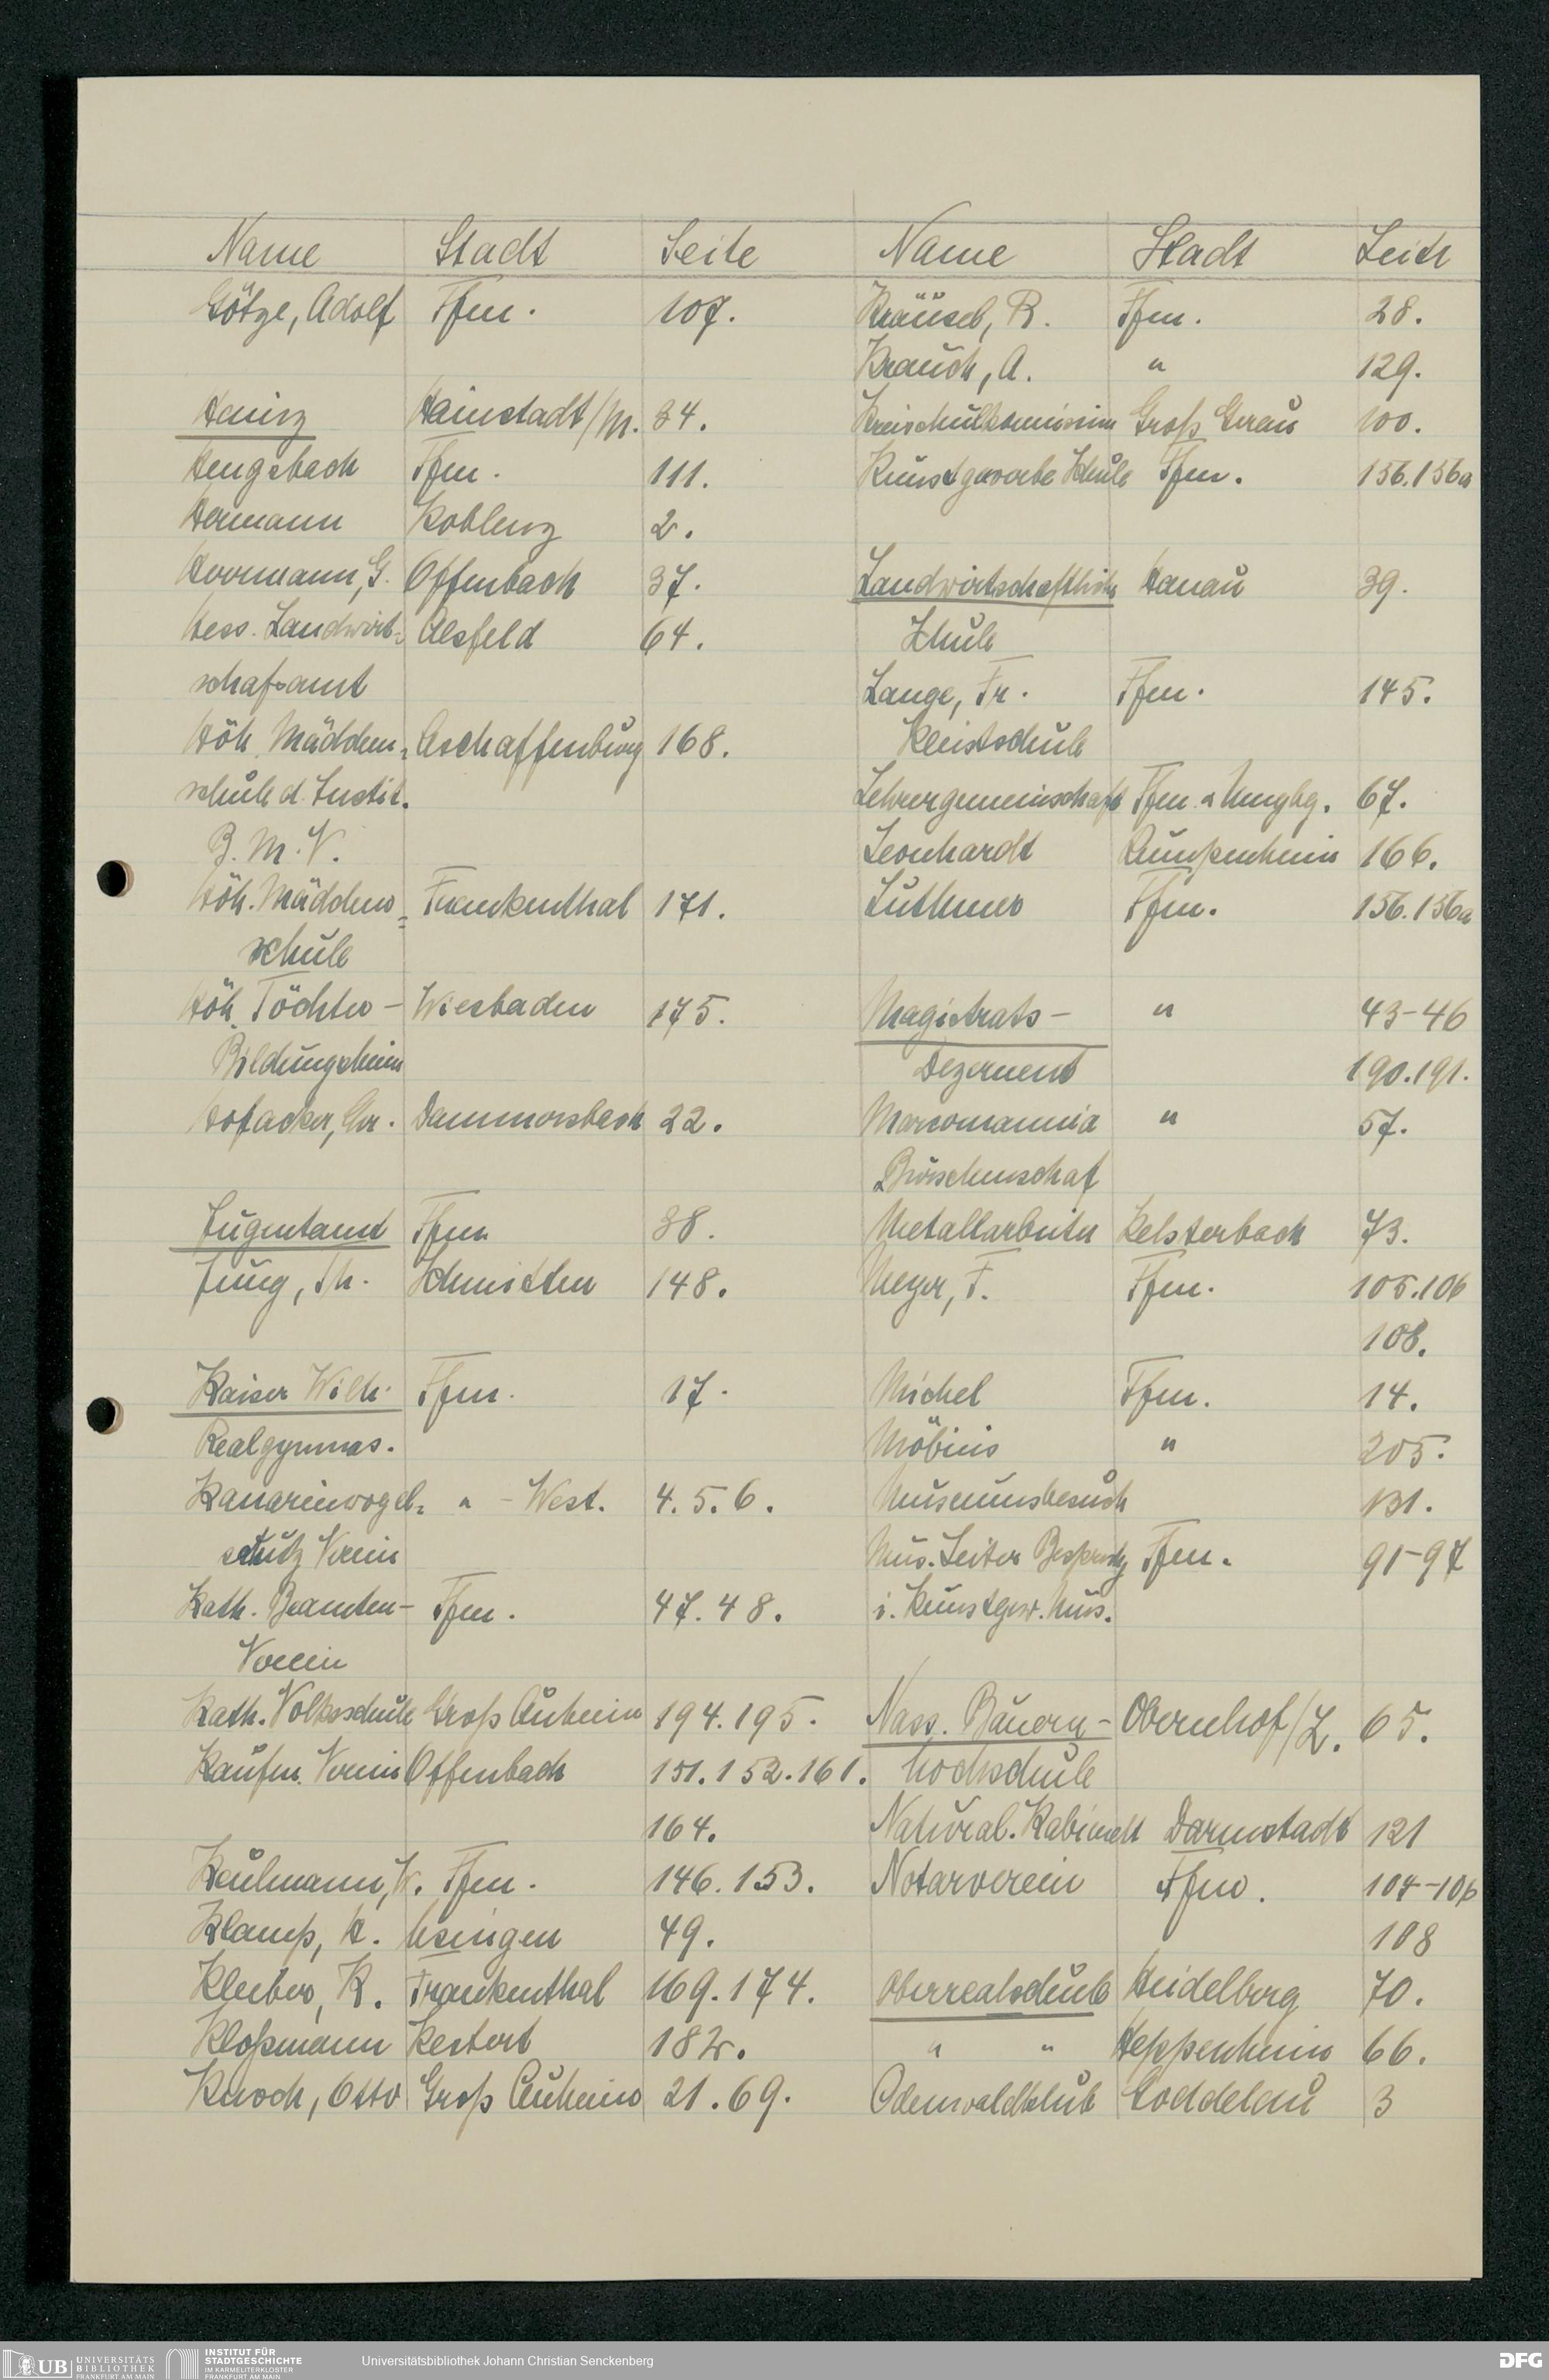 Name Stadt Seite
Götze, Adolf Ffm. 107.
Hainz Hainstadt/M. 34.
Hengsbach Ffm. 111.
Hermann Koblenz 2.
Herrmann, G. Offenbach 37.
Hess. Landwirt- Alsfeld 64.
schafsamt
Höh. Mädchen- Aschaffenburg 168.
schule d. Instit.
B. M. V.
Höh. Mädchen= Frankenthal 171.
schule
Höh. Töchter- Wiesbaden 175.
Bildungsheim
Hofacker, Chr. Dammersbach 22.
Jugentamt Ffm 38.
Jung, Th. Schmitten 148.
Kaiser Wilh. Ffm. 17.
Realgymnas.
Kanarienvogel= " - West. 4. 5. 6.
schutz Verein
Kath. Beamten- Ffm. 47. 48.
Verein
Kath. Volksschule Groß Auheim 194. 195.
Kaufm. Verein Offenbach 151. 152. 161.
164.
Keulmann, W. Ffm. 146. 153.
Klamp, K. Usingen 49.
Kleiber, K. Frankenthal 169. 174.
Kloßmann Kestert 182.
Knoch, Otto Groß Auheim 21. 69.
Name Stadt Seite
Kräusel, R. Ffm. 28.
Krauch, A. " 129.
Kreisschulkomission Groß Gerau 100.
Kunstgewerbe Schule Ffm. 156. 156a
Landwirtschaftliche Hanau 39.
Schule
Lange, Fr. Ffm. 145.
Kleistschule
Lehrergemeinschaft Ffm. u Umgbg. 67.
Leonhardt Rumpenheim 166.
Luthmer Ffm. 156. 156a
Magistrats- " 43-46
Dezernent 190. 191.
Marcomannia " 57.
Burschenschaf
Metallarbeiter Kelsterbach 73.
Meyer, F. Ffm. 105. 106
108.
Michel Ffm. 14.
Möbius " 205.
Museumsbesuch 131.
Mus. Leiter Besprechg Ffm. 91-97
i. Kunstgew. Mus.
Nass. Bauern- Obernhof/L. 65.
hochschule
Natural. Kabinett Darmstadt 121
Notarverein Ffm. 104-106
108
Oberrealschule Heidelberg 70.
" " Heppenheim 66.
Odenwaldklub Goddelau 3
UB UNIVERSITÄTS
BIBLIOTHEK
FRANKFURT AM MAIN
INSTITUT FÜR
STADTGESCHICHTE
IM KARMELITERKLOSTER
FRANKFURT AM MAIN
Universitätsbibliothek Johann Christian Senckenberg
DFG